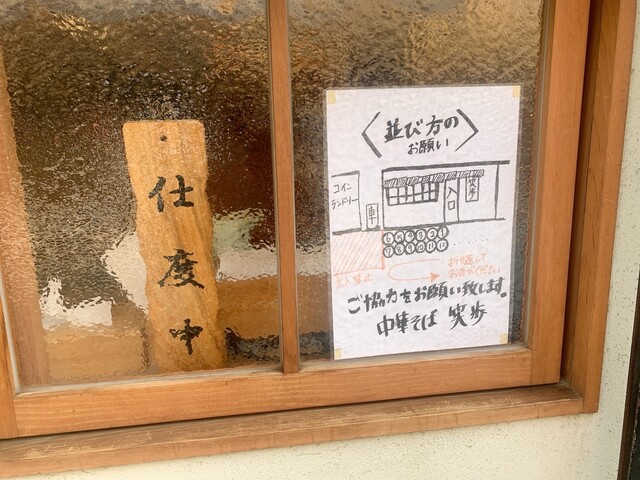 仕度中
〈並び方の〉
お願い
コイン
ランドリー
車
入口
笑歩
⑥⑤④③②①
⑦⑧⑨⑩⑪⑫
立入禁止
折り返して
お並びください
ご協力をお願い致します。
中華そば 笑歩